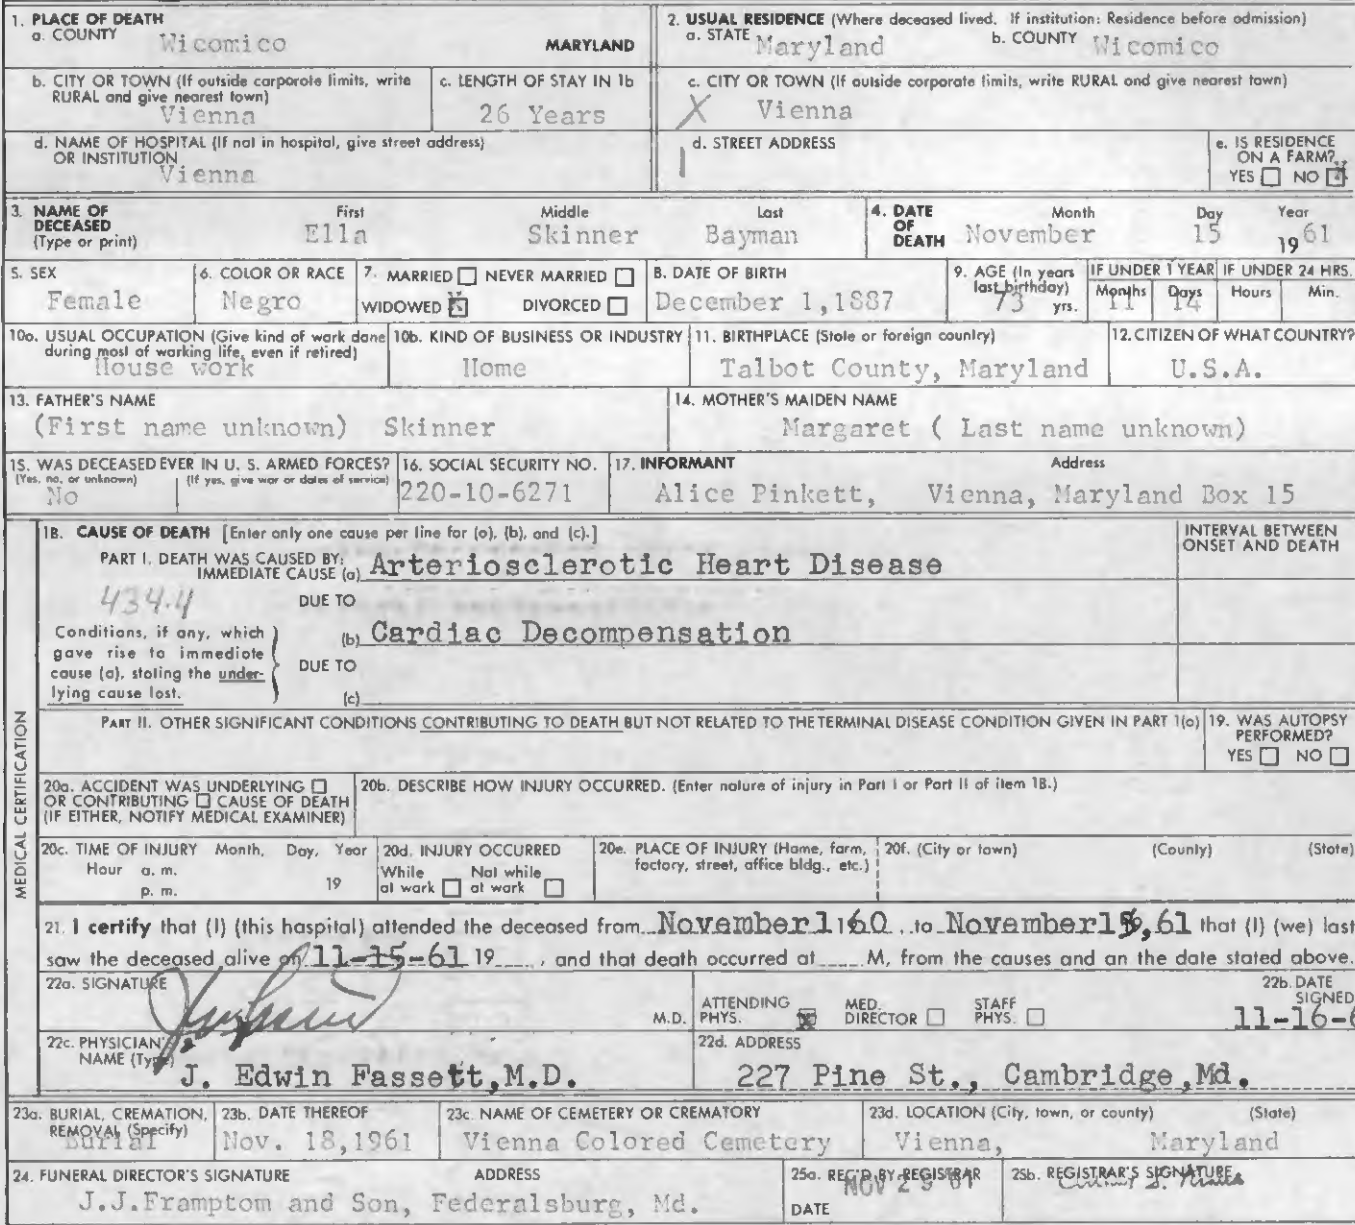 1. PLACE OF DEATH
a. COUNTY Wicomico MARYLAND
2. USUAL RESIDENCE (Where deceased lived. If institution: Residence before admission)
a. STATE Maryland b. COUNTY Wicomico
b. CITY OR TOWN (If outside corporate limits, write RURAL and give nearest town)
Vienna
c. LENGTH OF STAY IN 1b
26 Years
c. CITY OR TOWN (If outside corporate limits, write RURAL and give nearest town)
X Vienna
d. NAME OF HOSPITAL (If not in hospital, give street address)
OR INSTITUTION
Vienna
d. STREET ADDRESS
e. IS RESIDENCE ON A FARM?
YES NO X
3. NAME OF DECEASED (Type or print)
First Middle Last
Ella Skinner Bayman
4. DATE OF DEATH
Month Day Year
November 15 1961
5. SEX
Female
6. COLOR OR RACE
Negro
7. MARRIED NEVER MARRIED
WIDOWED X DIVORCED
8. DATE OF BIRTH
December 1,1887
9. AGE (In years last birthday)
73 yrs.
IF UNDER 1 YEAR
Months Days
11 14
IF UNDER 24 HRS.
Hours Min.
10a. USUAL OCCUPATION (Give kind of work done during most of working life, even if retired)
House work
10b. KIND OF BUSINESS OR INDUSTRY
Home
11. BIRTHPLACE (State or foreign country)
Talbot County, Maryland
12. CITIZEN OF WHAT COUNTRY?
U.S.A.
13. FATHER'S NAME
(First name unknown) Skinner
14. MOTHER'S MAIDEN NAME
Margaret ( Last name unknown)
15. WAS DECEASED EVER IN U. S. ARMED FORCES?
(Yes, no, or unknown) (If yes, give war or dates of service)
No
16. SOCIAL SECURITY NO.
220-10-6271
17. INFORMANT Address
Alice Pinkett, Vienna, Maryland Box 15
MEDICAL CERTIFICATION
18. CAUSE OF DEATH [Enter only one cause per line for (a), (b), and (c).]
INTERVAL BETWEEN ONSET AND DEATH
PART I. DEATH WAS CAUSED BY:
IMMEDIATE CAUSE (a) Arteriosclerotic Heart Disease
434.4 DUE TO
Conditions, if any, which gave rise to immediate cause (a), stating the underlying cause last.
(b) Cardiac Decompensation
DUE TO
(c)
PART II. OTHER SIGNIFICANT CONDITIONS CONTRIBUTING TO DEATH BUT NOT RELATED TO THE TERMINAL DISEASE CONDITION GIVEN IN PART 1(a)
19. WAS AUTOPSY PERFORMED?
YES NO
20a. ACCIDENT WAS UNDERLYING
OR CONTRIBUTING CAUSE OF DEATH
(IF EITHER, NOTIFY MEDICAL EXAMINER)
20b. DESCRIBE HOW INJURY OCCURRED. (Enter nature of injury in Part I or Part II of item 18.)
20c. TIME OF INJURY Month, Day, Year
Hour a. m.
p. m. 19
20d. INJURY OCCURRED
While at work Not while at work
20e. PLACE OF INJURY (Home, farm, factory, street, office bldg., etc.)
20f. (City or town) (County) (State)
21. I certify that (I) (this hospital) attended the deceased from November 1 1960 to November 15, 61 that (I) (we) last
saw the deceased alive on 11-15-61 19 , and that death occurred at M, from the causes and on the date stated above.
22a. SIGNATURE
M.D.
ATTENDING PHYS. X MED. DIRECTOR STAFF PHYS.
22b. DATE SIGNED
11-16-6
22c. PHYSICIAN'S NAME (Type)
J. Edwin Fassett,M.D.
22d. ADDRESS
227 Pine St., Cambridge,Md.
23a. BURIAL, CREMATION, REMOVAL (Specify)
Burial
23b. DATE THEREOF
Nov. 18,1961
23c. NAME OF CEMETERY OR CREMATORY
Vienna Colored Cemetery
23d. LOCATION (City, town, or county) (State)
Vienna, Maryland
24. FUNERAL DIRECTOR'S SIGNATURE ADDRESS
J.J.Framptom and Son, Federalsburg, Md.
25a. REC'D BY REGISTRAR
DATE
NOV 29 61
25b. REGISTRAR'S SIGNATURE